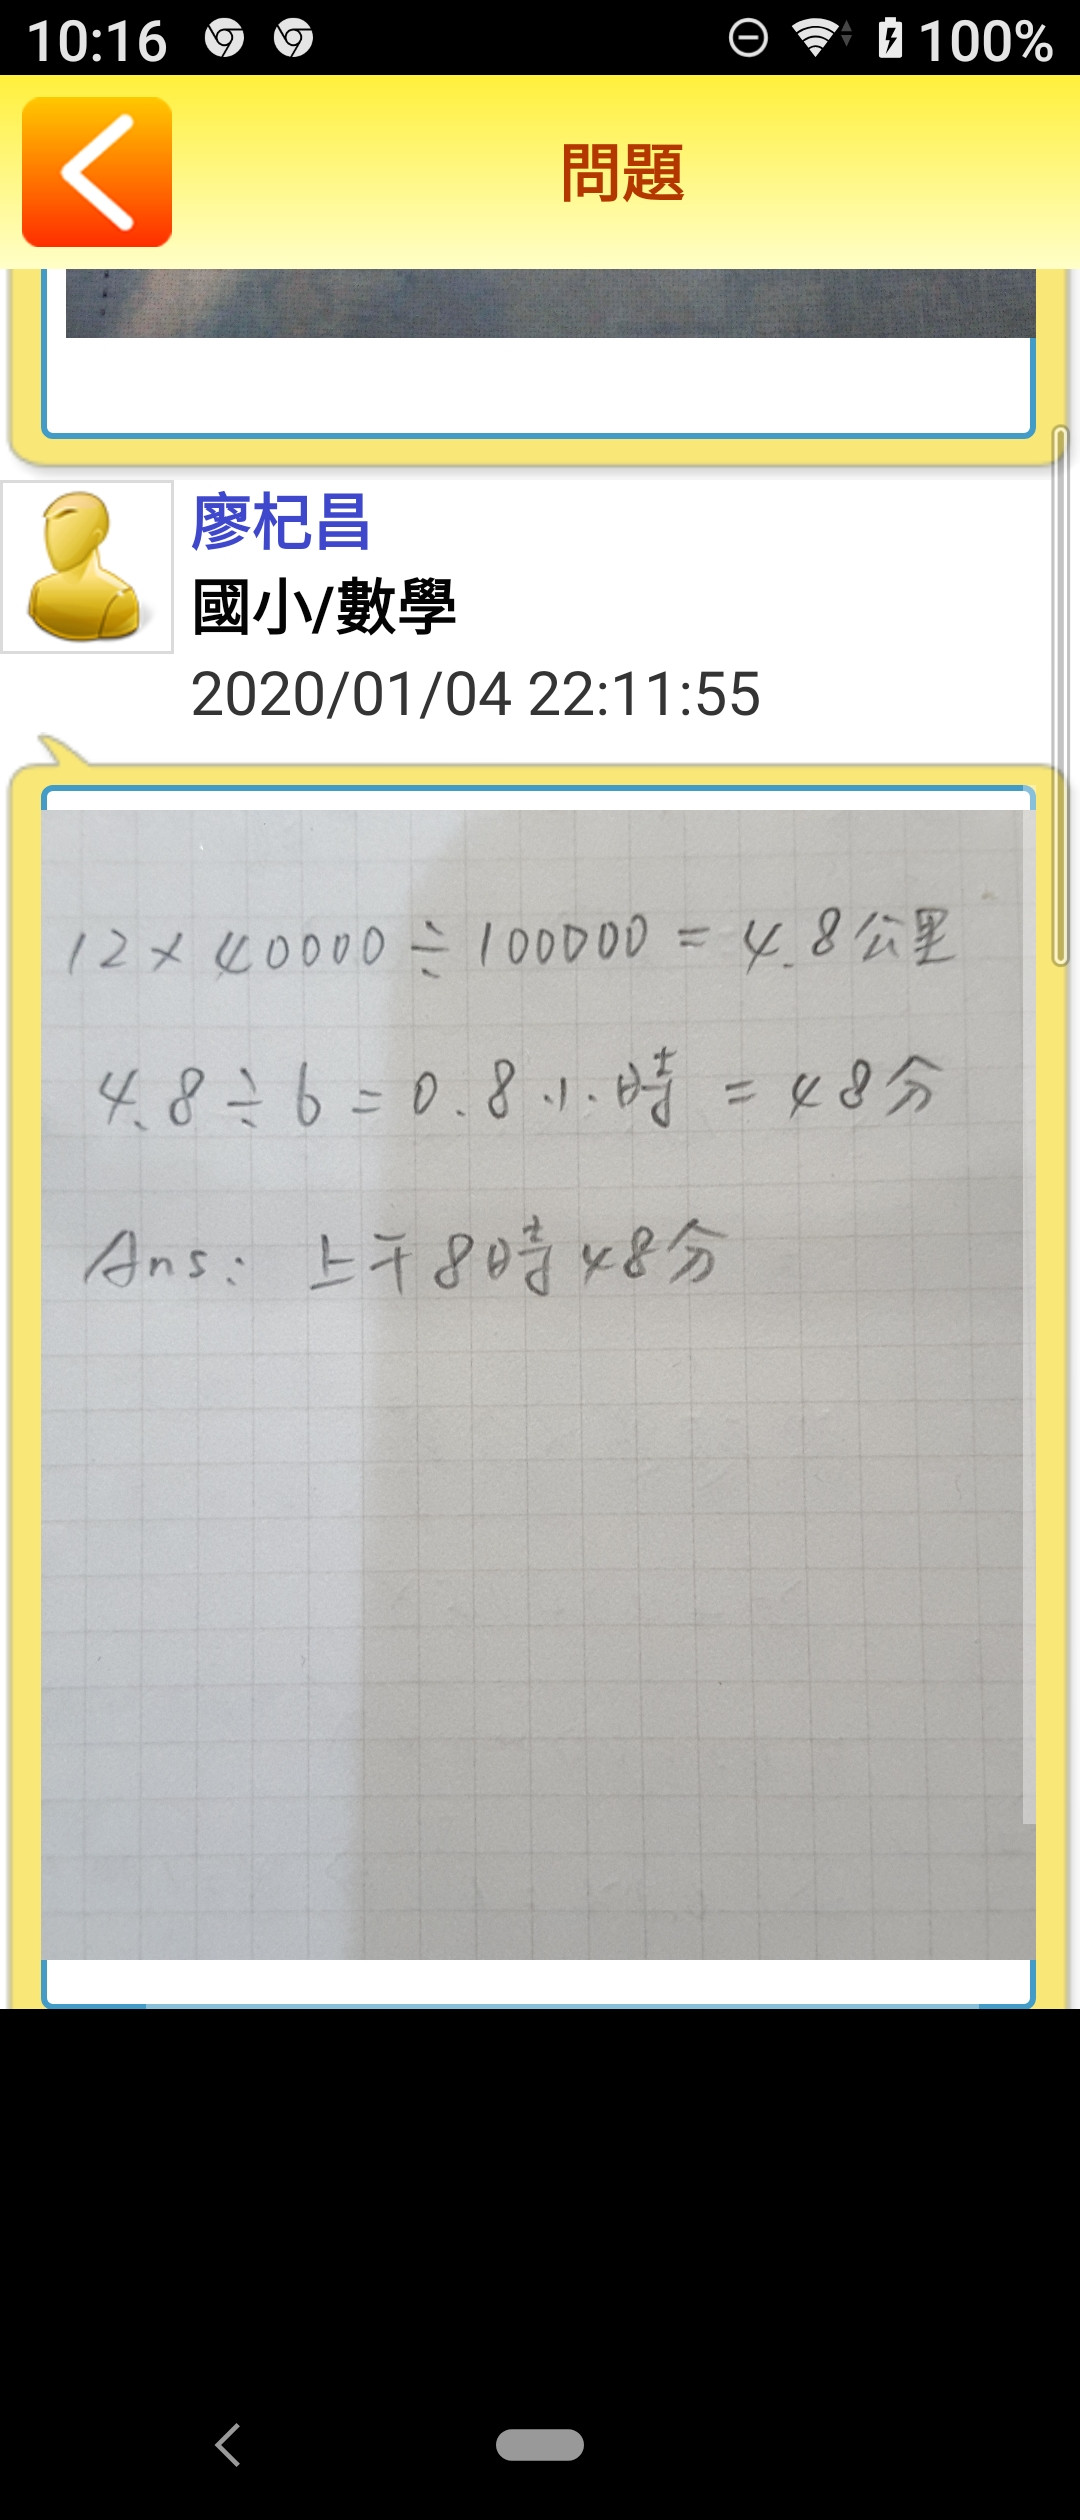 10:16 100%
問題
廖杞昌
國小/數學
2020/01/04 22:11:55
12×40000÷100000=4.8公里
4.8÷6=0.8小時=48分
Ans: 上午8時48分